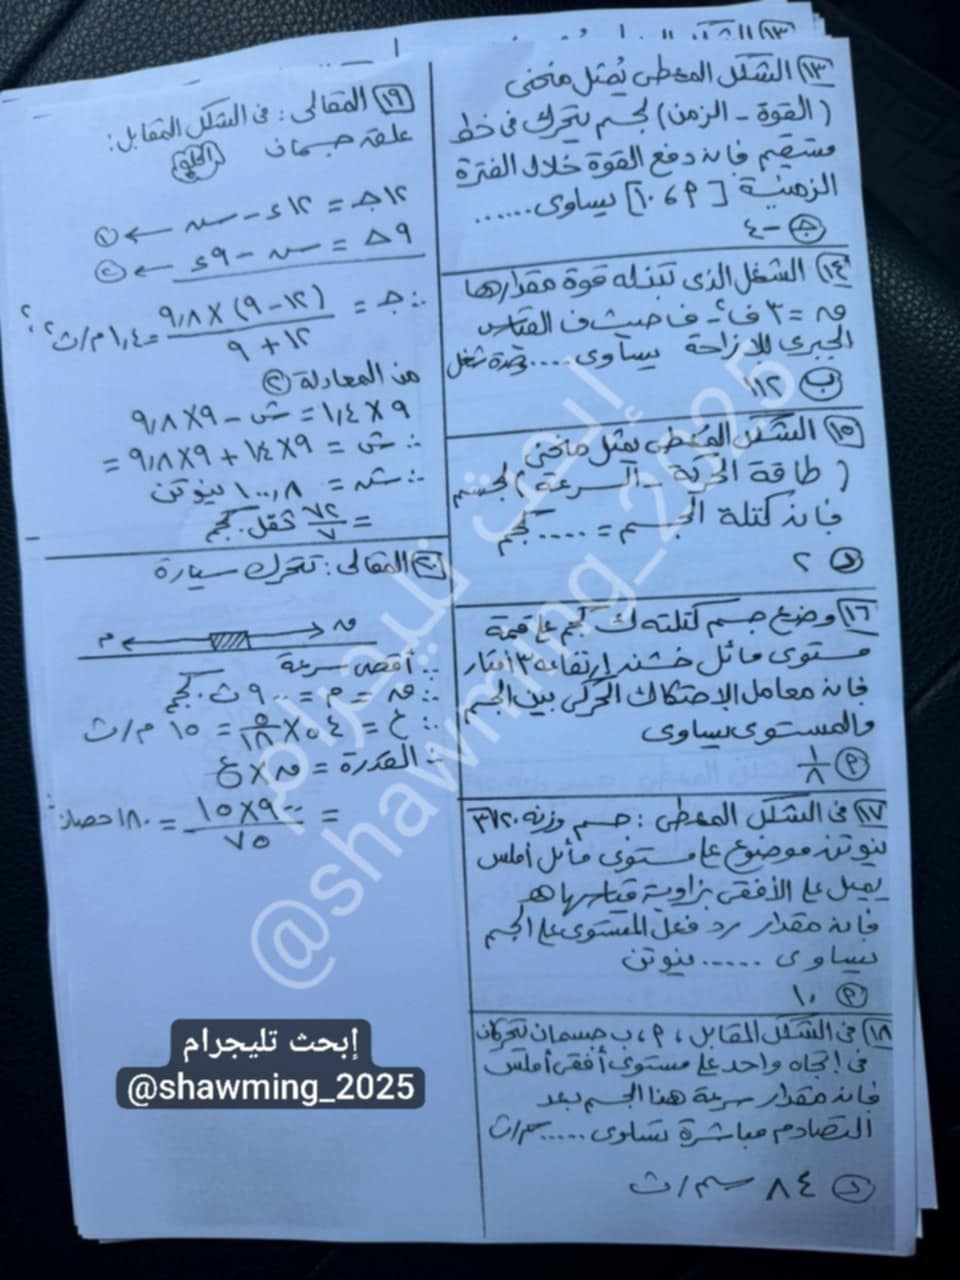 ١٣ الشكل المعطى يُمثل منحنى
( القوة - الزمن ) لجسم يتحرك فى خط
مستقيم فإن دفع القوة خلال الفترة
الزمنية [ ٢ ، ١٠ ] يساوى ......
جـ -٤
١٤ الشغل الذى تبذله قوة مقدارها
الجبرى للإزاحة يساوى .... وحدة شغل
ب ١١٢
١٥ الشكل المعطى يمثل منحنى
( طاقة الحركة - السرعة ) لجسم
فإن كتلة الجسم = .... كجم
د ٢
١٦ وضع جسم كتلته ك كجم على قمة
مستوى مائل خشن إرتفاعه ٣ أمتار
فإن معامل الاحتكاك الحركى بين الجسم
والمستوى يساوى
١/٨
١٧ فى الشكل المعطى : جسم وزنه
نيوتن موضوع على مستوى مائل أملس
يميل على الأفقى بزاوية قياسها هـ
فإن مقدار رد فعل المستوى على الجسم
يساوى ..... نيوتن
١٠
١٨ فى الشكل المقابل ، ٢ ، ب جسمان يتحركان
فى إتجاه واحد على مستوى أفقى أملس
فإن مقدار سرعة هذا الجسم بعد
التصادم مباشرة تساوى ..... سم/ث
د ٨٤ سم/ث
١٩ المقالى : فى الشكل المقابل :
علقه جسمان الحل
١٢جـ = ١٢ء - سـ ← ١
٩جـ = سـ - ٩ء ← ٢
∴ جـ = (١٢ - ٩) × ٩,٨ / ١٢ + ٩ = ١,٤ م/ث٢
من المعادلة ٢
٩ × ١,٤ = ش - ٩ × ٩,٨
∴ ش = ٩ × ١,٤ + ٩ × ٩,٨ =
∴ شـ = ١٠٠,٨ نيوتن
= ٧٢/٧ ثقل كجم
٢٠ المقالى : تتحرك سيارة
م ق
∴ أقصى سرعة
∴ ق = م = ٩٠٠ ث كجم
∴ ع = ٥٤ × ٥/١٨ = ١٥ م/ث
∴ القدرة = ق × ع
= ٩٠٠ × ١٥ / ٧٥ = ١٨٠ حصان
إبحث تليجرام
@shawming_2025
إبحث تليجرام
@shawming_2025